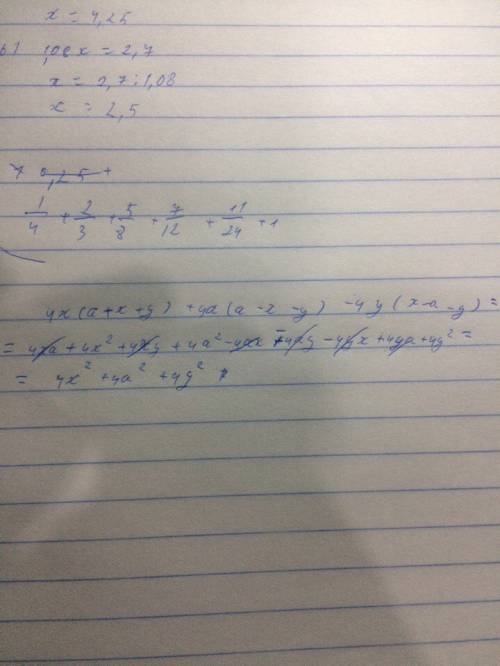 x = 4,25
b) 1,08 x = 2,7
x = 2,7 : 1,08
x = 2,5
7 0,25 +
1/4 + 2/3 + 5/8 + 7/12 + 11/24 + 1
4x(a+x+y) +4a(a-x-y) -4y(x-a-y) =
= 4xa + 4x² + 4xy + 4a² - 4ax - 4ay - 4yx + 4ya + 4y² =
= 4x² + 4a² + 4y²